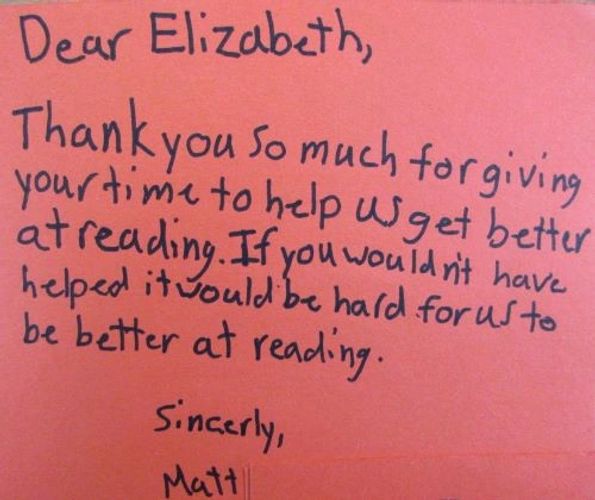 Dear Elizabeth,
Thank you so much for giving
your time to help us get better
at reading. If you wouldn't have
helped it would be hard for us to
be better at reading.
Sincerly,
Matt